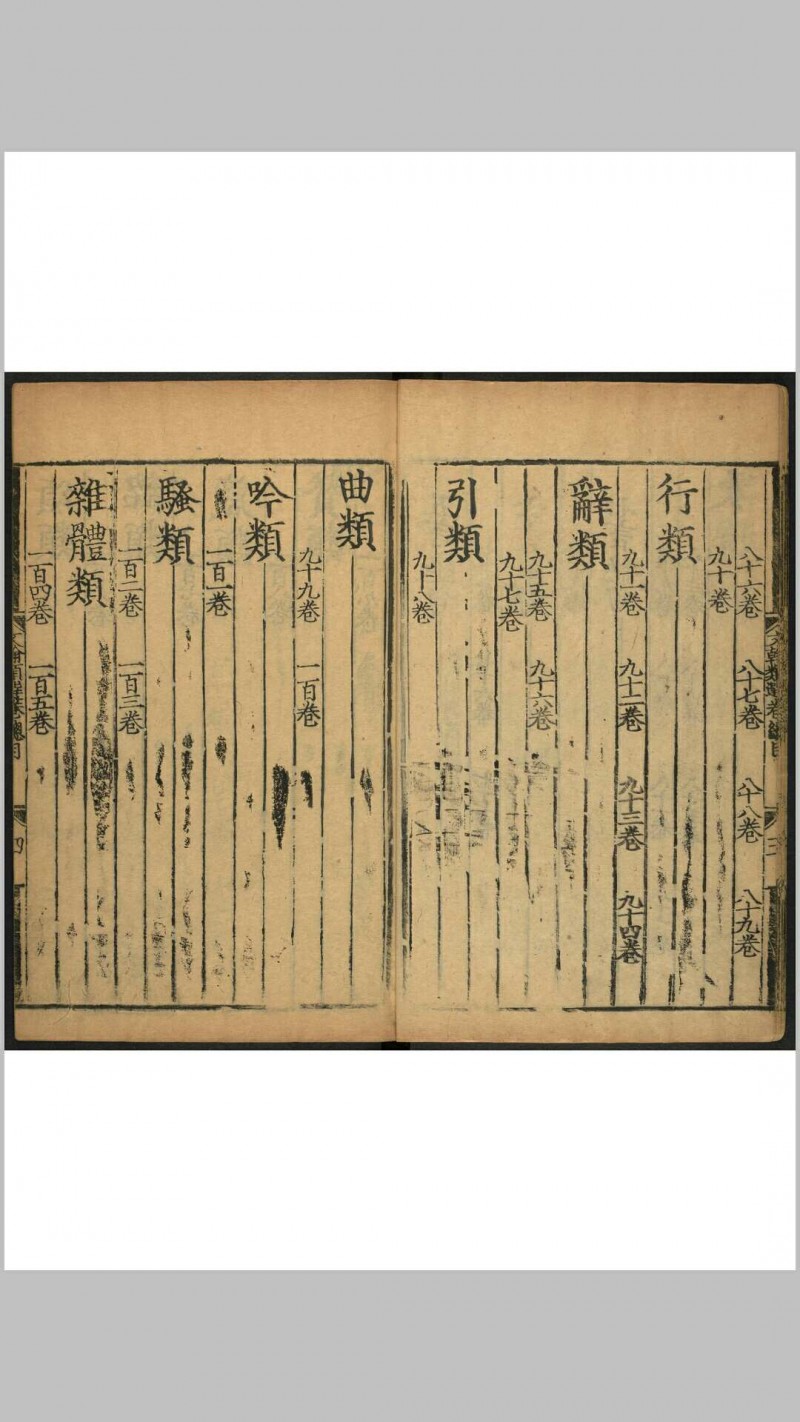 八十六卷 八十七卷 八十八卷 八十九卷
九十卷
行類
九十一卷 九十二卷 九十三卷 九十四卷
辭類
九十五卷 九十六卷
九十七卷
引類
九十八卷
曲類
九十九卷 一百卷
吟類
一百一卷
騷類
一百二卷 一百三卷
雜體類
一百四卷 一百五卷
四